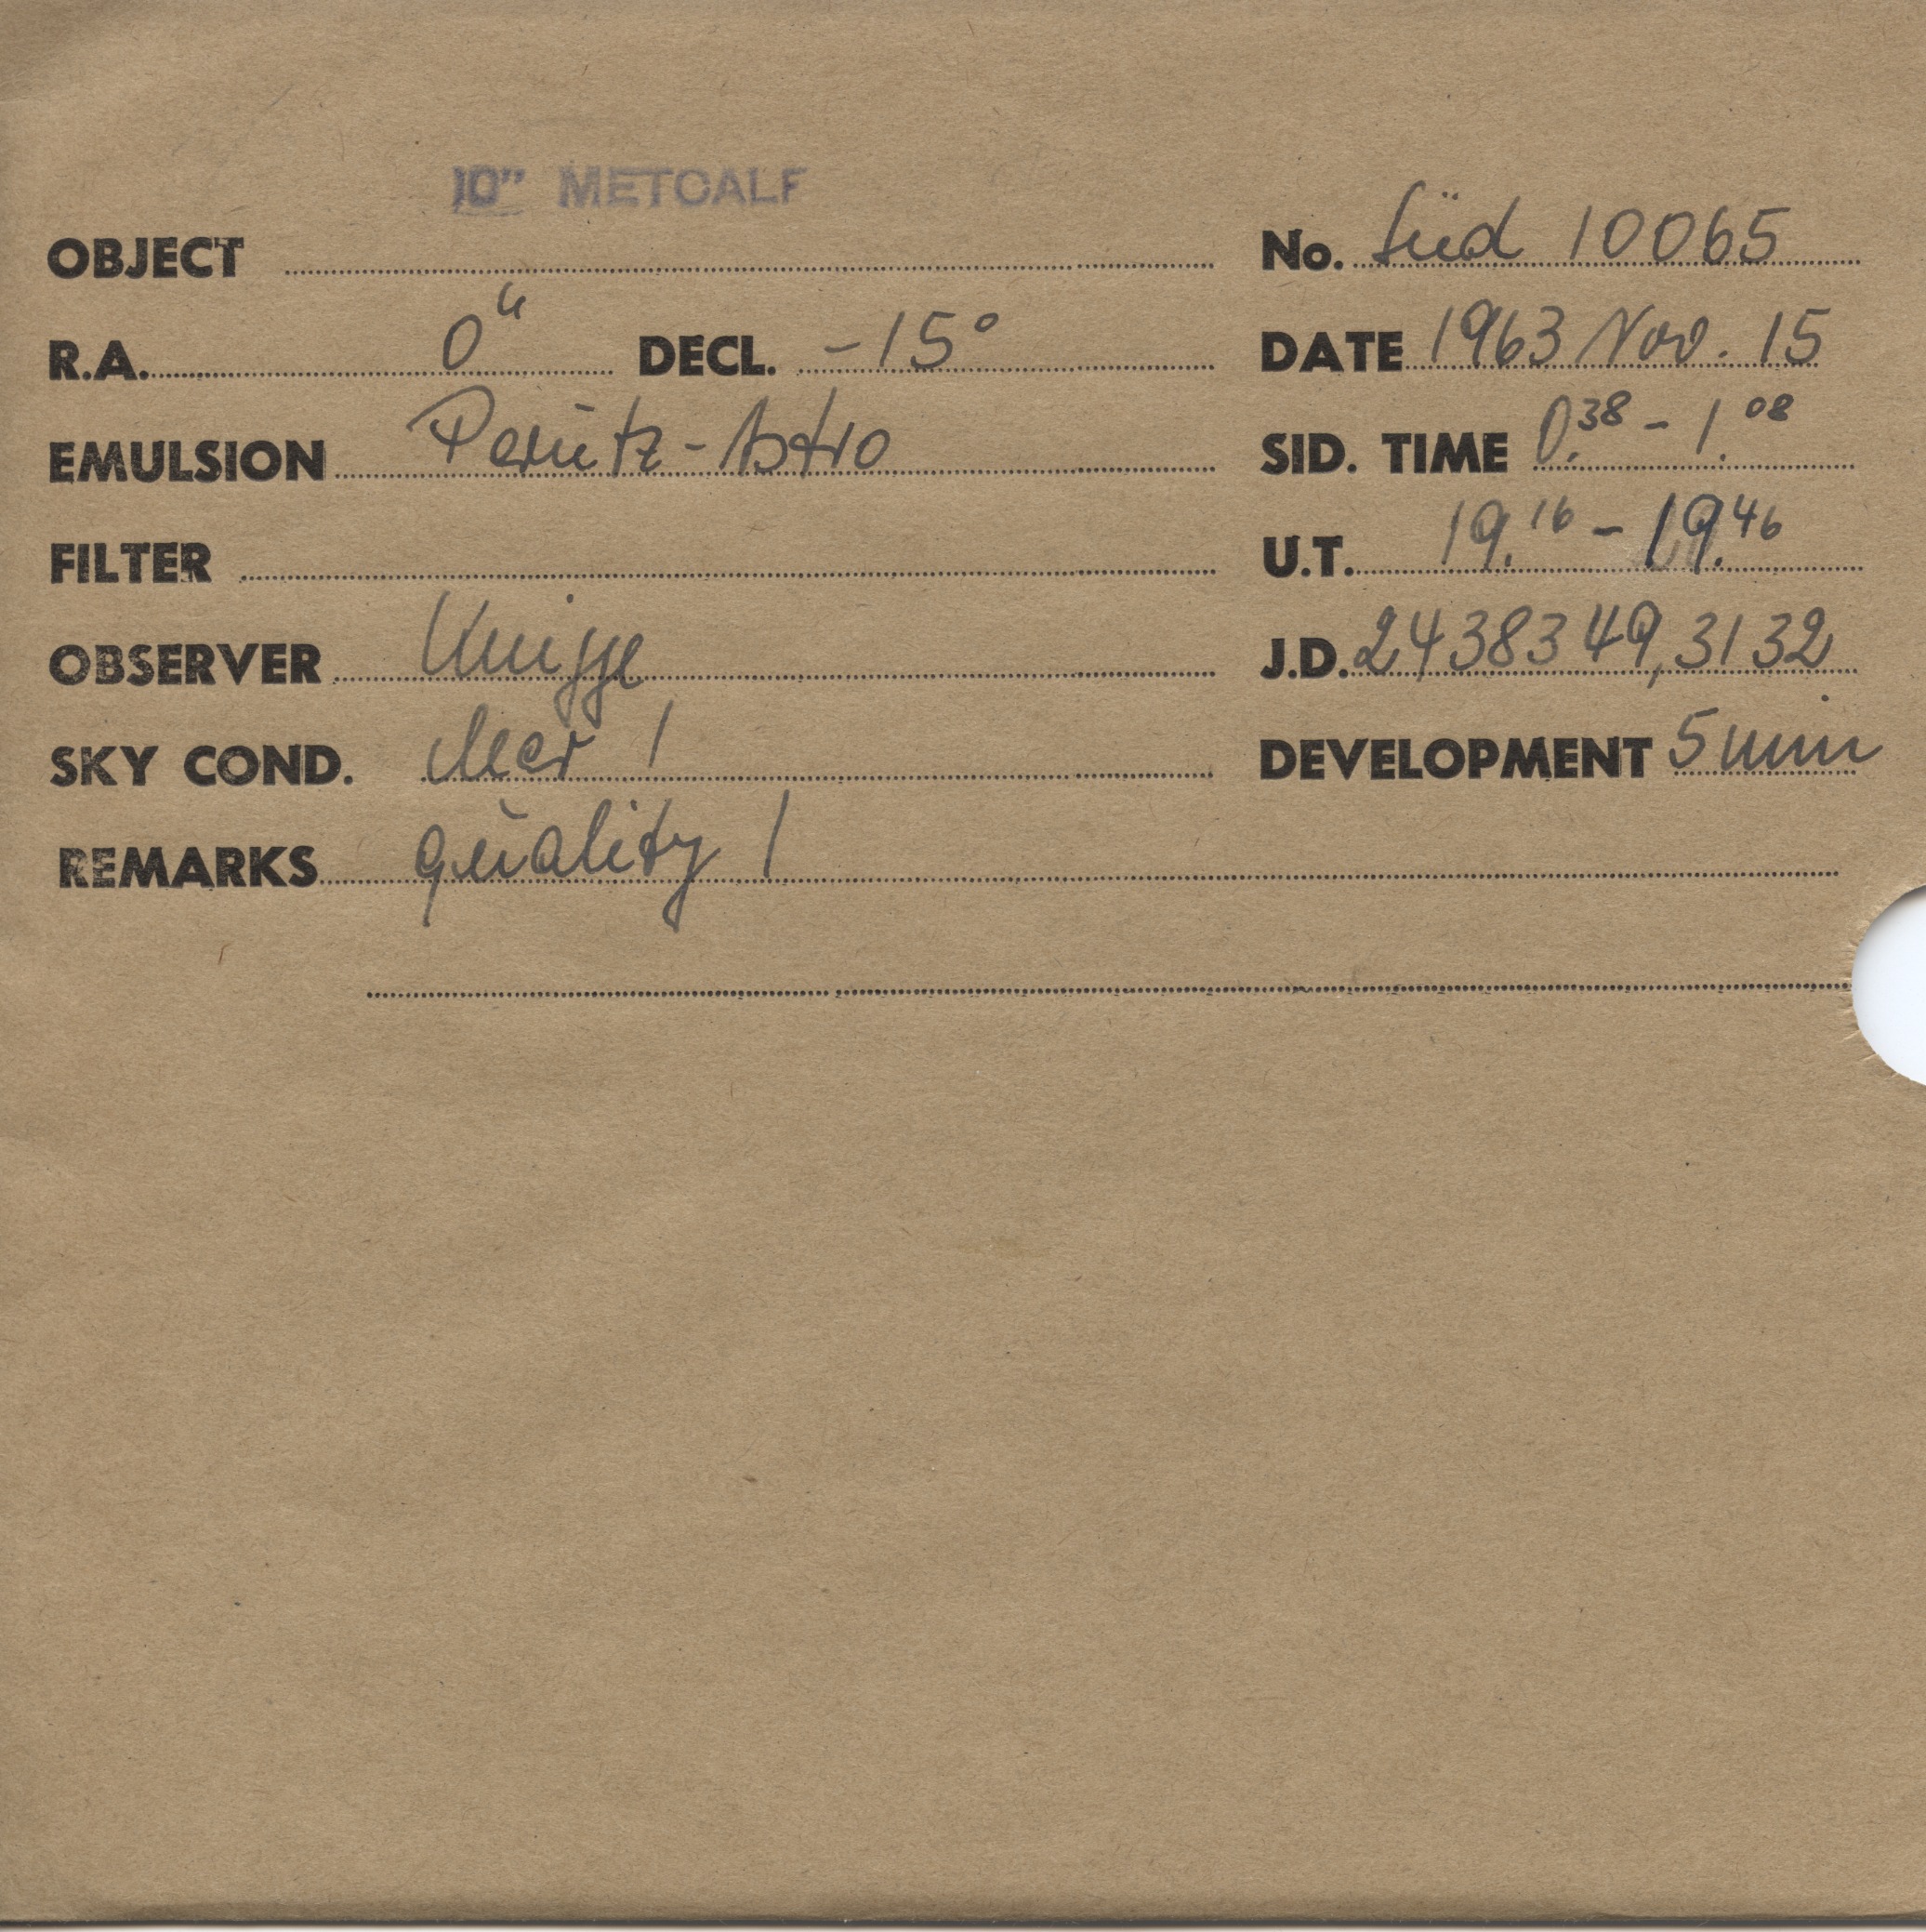 10" METCALF
OBJECT No. Süd 10065
R.A. 0h DECL. -15° DATE 1963 Nov. 15
EMULSION Perutz-Astro SID. TIME 0.38 - 1.08
FILTER U.T. 19.16 - 19.46
OBSERVER Knigge J.D. 2438349,3132
SKY COND. clear 1 DEVELOPMENT 5 min
REMARKS quality 1